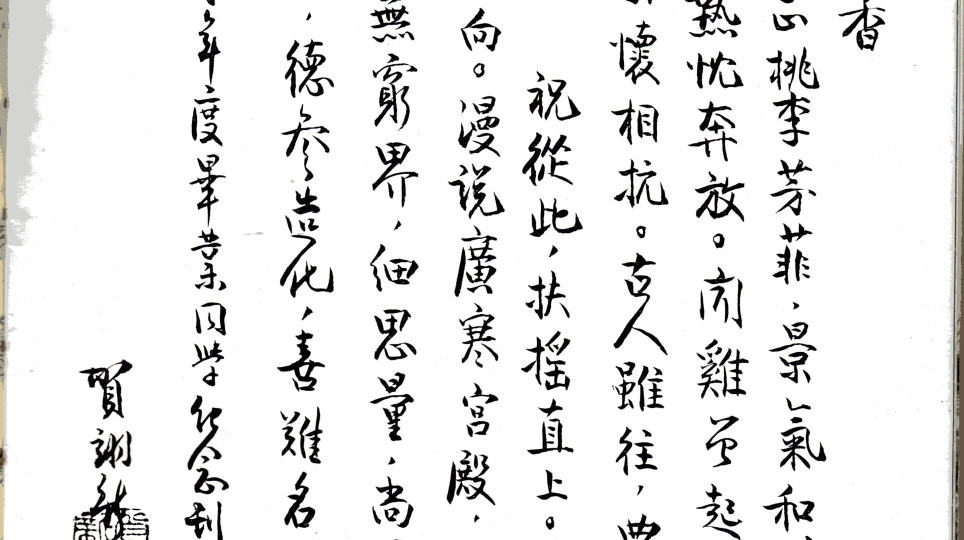 香
桃李芳菲，景氣和，
熱忱奔放。聞雞曾起
懷相抗。古人雖往，典
祝從此，扶摇直上。
向。漫説廣寒宫殿，
無窮界，細思量，尚
，德參造化，善難名
年度畢業同學紀念刊
賀翊新